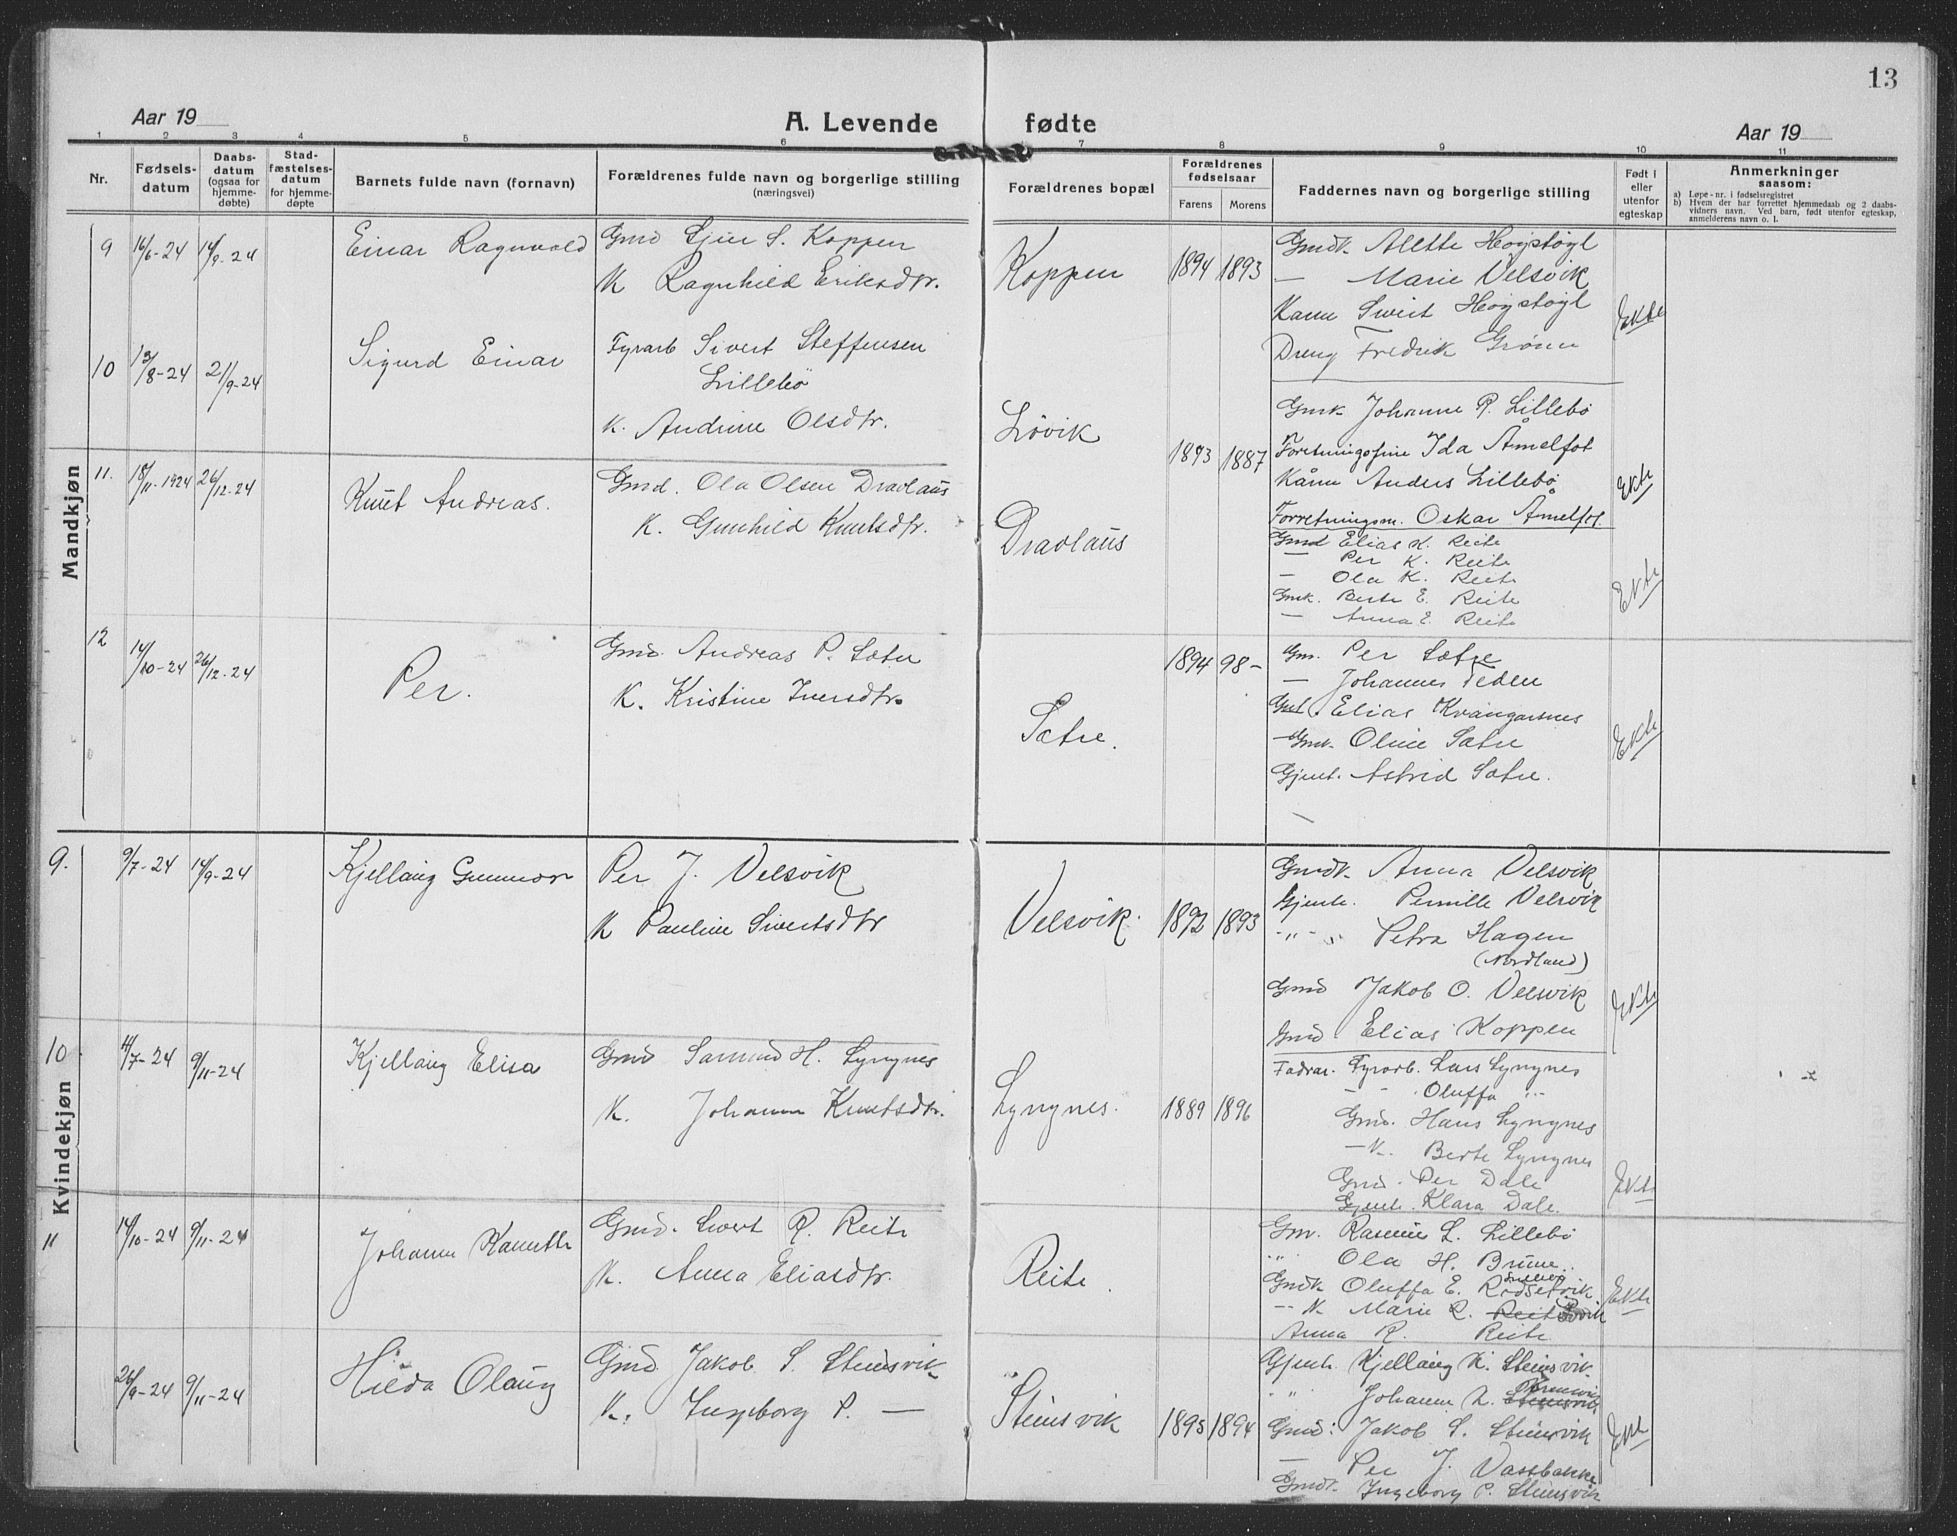 13
Aar 19
A. Levende fødte
Aar 19
1 2 3 4 5 6 7 8 9 10 11
Nr.
Fødsels-
datum
Daabs-
datum
(ogsaa for
hjemme-
døbte)
Stad-
fæstelses-
datum
for hjemme-
døpte
Barnets fulde navn (fornavn)
Forældrenes fulde navn og borgerlige stilling
(næringsvei)
Forældrenes bopæl
Forældrenes
fødselsaar
Farens Morens
Faddernes navn og borgerlige stilling
Født i
eller
utenfor
egteskap
Anmerkninger
saasom:
a) Løpe-nr. i fødselsregistret
b) Hvem der har forrettet hjemmedaab og 2 daabs-
vidners navn. Ved barn, født utenfor egteskap,
anmelderens navn o. l.
Mandkjøn
9 16/6-24 14/9-24 Einar Ragnvald
Gmd S. Koppen
K Ragnhild Eriksdtr.
Koppen 1894 1893
Gmdk. Alette Høgstøgl
— Marie Velsvik
Sivert Høgstøgl
Dreng Fredrik Grønn
Ekte
10 13/8-24 21/9-24 Sigurd Einar
Fyrarb Sivert Steffensen
Lillebø
K. Andrine Olsdtr.
Løvik 1893 1887
Gmk Johanne P. Lillebø
Ida Åmelfot
Anders Lillebø
Forretningsm. Oskar Åmelfot
Ekte
11. 18/11-1924 26/12-24 Knut Andreas.
Gmd. Ola Olsen Dravlaus
K. Gunhild Knutsdtr.
Dravlaus
Gmd Elias K. Reite
— Per K. Reite
— Ola K. Reite
Gmk. Berte E. Reite
— Anna E. Reite
Ekte
12 14/10-24 26/12-24 Per.
Gmd. Andreas P. Sætre
K. Kristine Iversdtr.
Sætre. 1894 98-
Gm. Per Sætre
— Johannes
Elias Kvangarsnes
Gmk. Oline Sætre
Gjent. Astrid Sætre.
Ekte
Kvindekjøn
9. 9/7-24 14/9-24 Kjellaug Gunnvor
Per J. Velsvik
K Pauline Sivertsdtr
Velsvik. 1892 1893
Gmdk. Anna Velsvik
Gjente. Pernille Velsvik
-„- Petra Hagen
(Nordland)
Gmd Jakob O. Velsvik
Gmd Elias Koppen
Ekte
10 4/7-24 9/11-24 Kjellaug Elisa
Gmd Samund H. Lyngnes
K. Johanna Knutsdtr.
Lyngnes. 1889 1896
Fadrar. Fyrarb. Lars Lyngnes
- - Oluffa -„-
Gmd. Hans Lyngnes
— K. Berte Lyngnes
Gmd. Per Dale
Gjente. Klara Dale.
Ekte
11 14/10-24 9/11-24 Johanna
Gmd. Sivert R. Reite
K. Anna Eliasdtr.
Reite.
Gm. Rasmus L. Lillebø
„ Ola H. Brune.
Gmdk Oluffa E. Rødsetvik.
— K. Marie R. Reite Løvik
Anna R. Reite
Ekte
26/9-24 9/11-24 Hilda Olaug
Gmd. Jakob S. Steinsvik
K. Ingeborg P. —
Steinsvik 1895 1894
Gjente Kjellaug K. Steinsvik.
„ Johanna Steinsvik
Gmd: Jakob S. Steinsvik
— Per J. Vassbakke
Gmdk. Ingeborg P. Steinsvik
Ekte